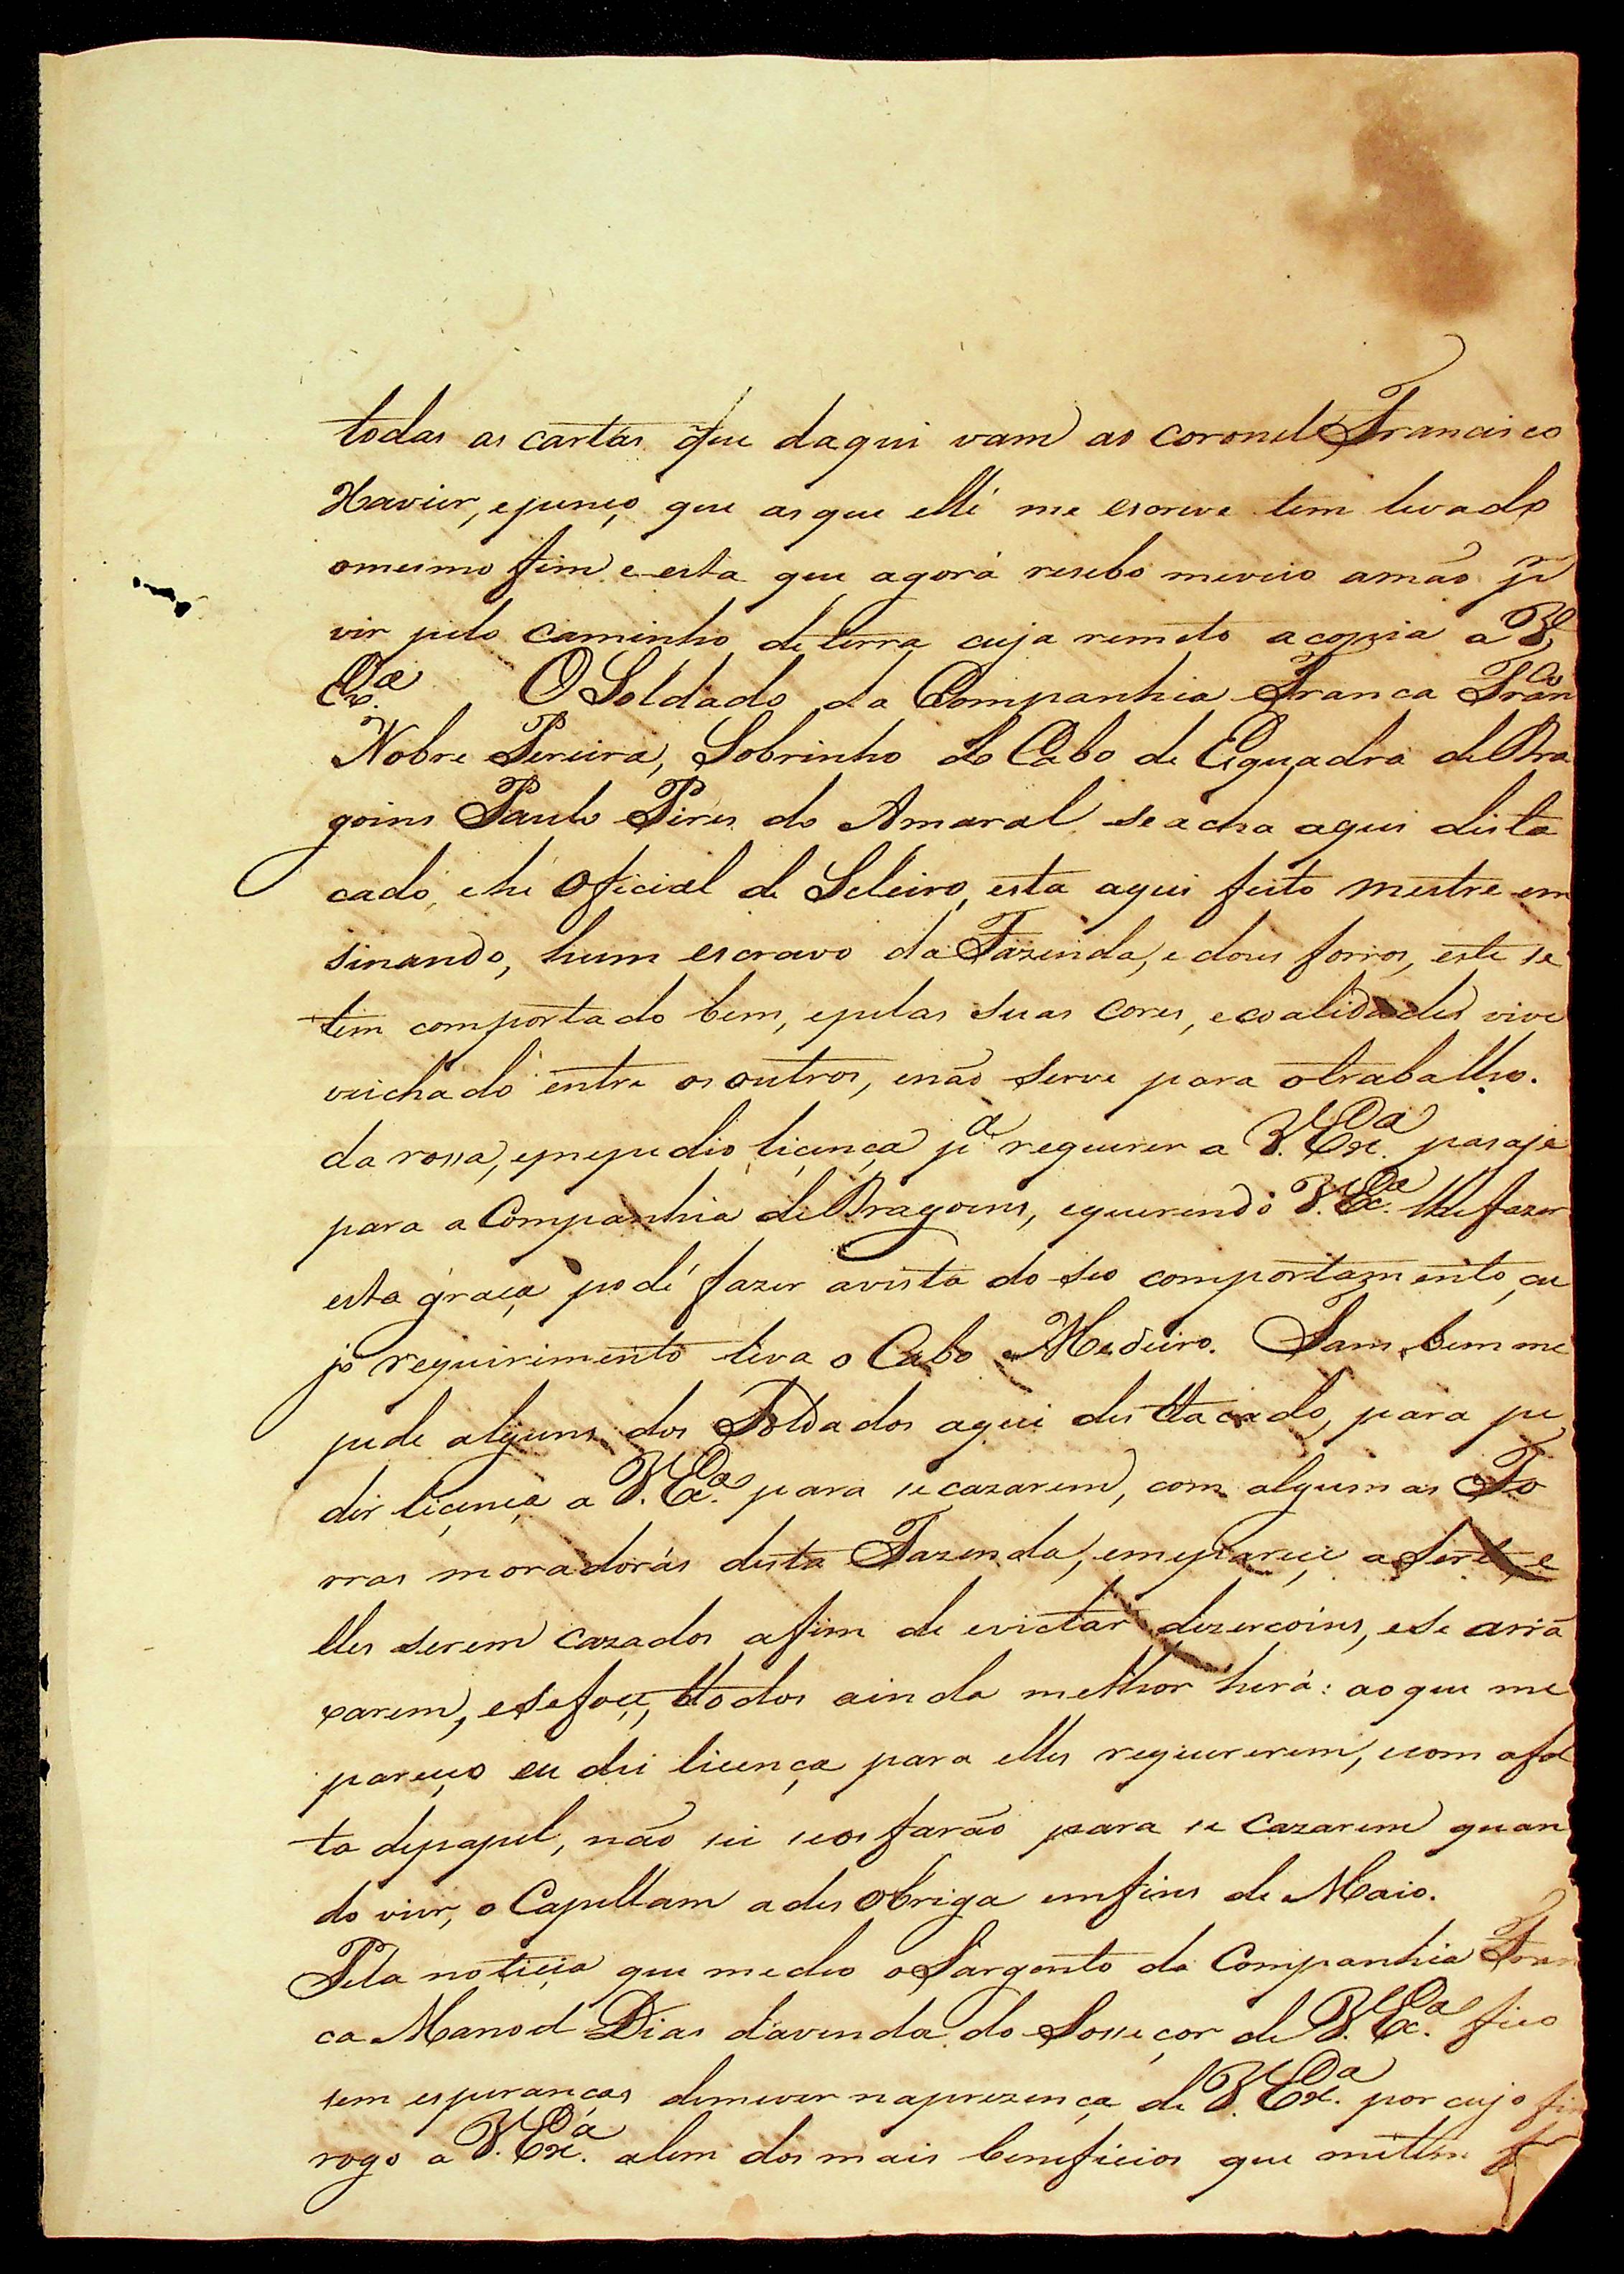 todas as cartas que daqui vam ao coronel Francisco
Xavier, epenço que as que elle me escreve tem levado
omesmo fim e esta que agora resebo meveio amão pr
vir pelo caminho de terra cuja remeto acopia a V.
Exa. O Soldado da Companhia Franca Franco
Nobre Pereira, Sobrinho do Cabo de Esquadra de Dra
goins Paulo Pires do Amaral se acha aqui desta
cado, ehé Oficial de Seleiro, esta aqui feito mestre em
sinando, hum escravo da Fazenda, e dous forros, este se
tem comportado bem, epelas suas cores, ecoalidades vive
veichado entre os outros, enão serve para otraballho.
da rossa, emepedio licença pa requerer a V. Exa. pasaje
para a Companhia de Dragoins, equerendo V. Exa. lhe fazer
esta graça pode fazer avista do seo comportamento, cu
jo requirimento leva o Cabo Medeiro. Tam bem me
pede alguns dos Soldados aqui desttacado, para pe
dir licença a V. Exa. para se cazarem, com algumas Fo
rras moradorás desta Fazenda, emepareçe aserto, e
lles serem cazados afim de evictar dezercoins, ese arrã
xarem, esefoçe, ttodos ainda melhor herá: ao que me
pareçeo eu dei licença para elles requererem, ecom afal
ta depapel, não sei seos farão para se cazarem quan
do vier, o Capellam a des Obriga emfins de Maio.
Pela noticia que medeo oSargento da Companhia Fran
ca Manoel Dias davenda do Sosseçor de V. Exa. fico
sem esperanças demever naprezença de V. Exa. por cujo fim
rogo a V. Exa. alem dos mais beneficios que metem f